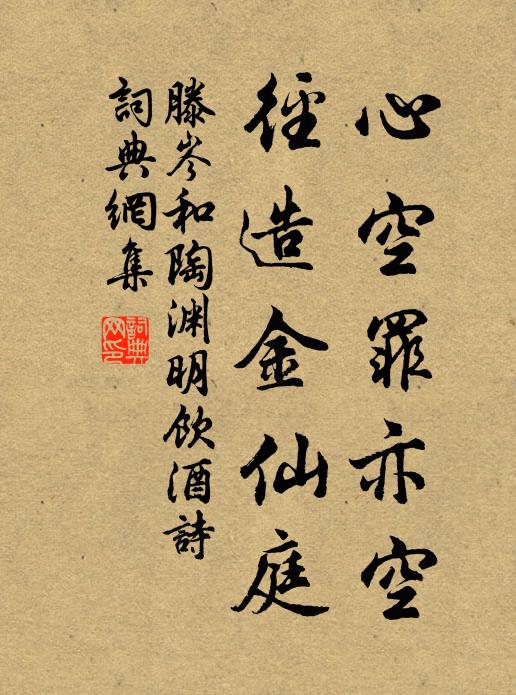 心空罪亦空
徑造金仙庭
滕岑和陶淵明飲酒詩
詞典網集
詞典
网印